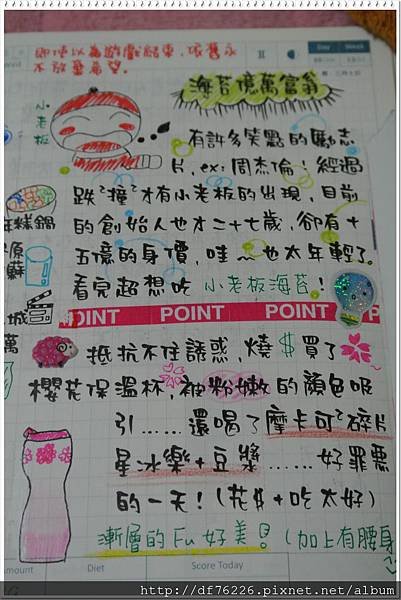 即使以為遊戲結束,依舊永
不放棄希望。
Day Week
海苔億萬富翁
小老板
有許多笑點的勵志
片,ex:周杰倫!經過
跌跌撞撞才有小老板的出現,目前
的創始人也才二十七歲,卻有十
五億的身價,哇~也太年輕了。
看完超想吃 小老板海苔!
年糕鍋
原
蘇
城
萬
POINT POINT POINT POINT
抵抗不住誘惑,燒$買了
櫻花保溫杯,被粉嫩的顏色吸
引……還喝了摩卡可可碎片
星冰樂+豆漿……好罪惡
的一天!(花$+吃太好)
漸層的Fu好美!(加上有腰身~
Amount Diet Score Today
http://df76226.pixnet.net/album